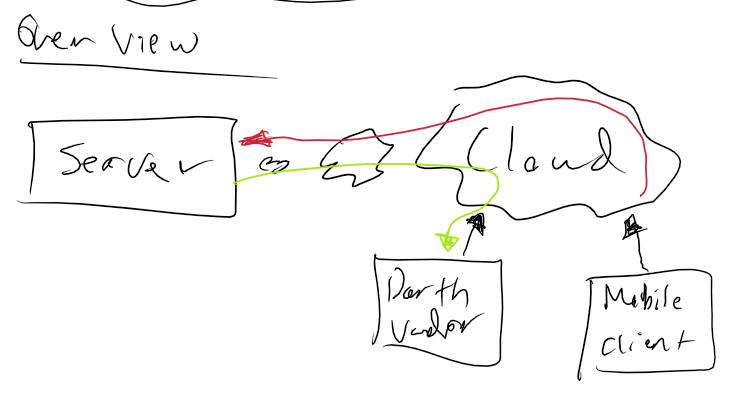 Over View
Server
Cloud
Darth
Vador
Mobile
client